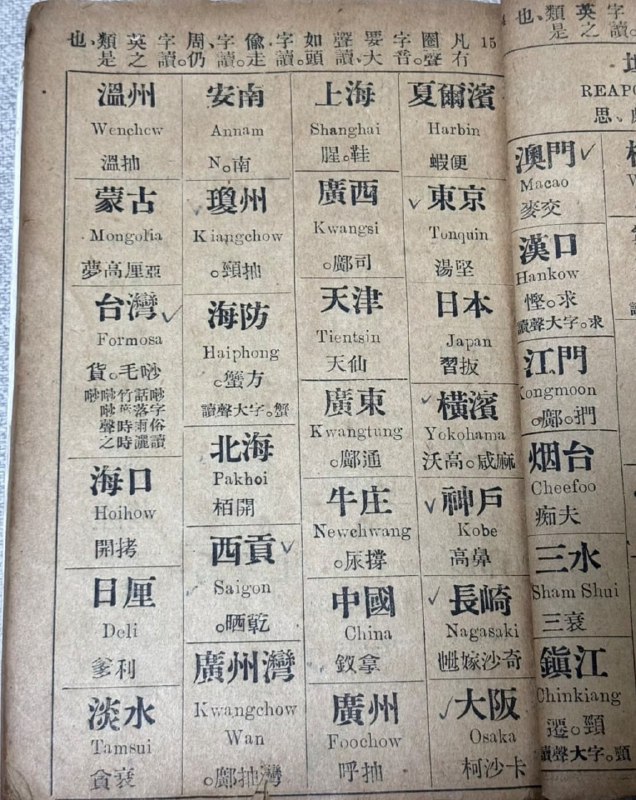 15 凡冇圈聲字音要大聲讀、如頭字讀。偷走字讀。周仍字讀。英之類是也、
夏爾濱
Harbin
蝦便
東京
Tonquin
湯堅
日本
Japan
習扳
橫濱
Yokohama
沃。高咸麻
神戶
Kobe
高鼻
長崎
Nagasaki
沙嫁奇
大阪
Osaka
柯沙卡
上海
Shanghai
腥。鞋
廣西
Kwangsi
。鄺司
天津
Tientsin
天仙
廣東
Kwangtung
。鄺通
牛庄
Newchwang
。尿撐
中國
China
釵拿
廣州
Foochow
呼抽
安南
Annam
N。南
瓊州
Kiangchow
。頸抽
海防
Haiphong
。蟹方
讀聲大字。蟹
北海
Pakhoi
栢開
西貢
Saigon
。晒乾
廣州灣
Kwangchow
Wan
。鄺抽灣
溫州
Wenchow
溫抽
蒙古
Mongolia
夢高厘亞
台灣
Formosa
貨。毛吵
吵字俗讀
話落雨灑
竹葉時時
吵吵聲之
海口
Hoihow
開拷
日厘
Deli
爹利
淡水
Tamsui
貪衰
英之類是也
REAPO
思
澳門
Macao
麥交
漢口
Hankow
慳。求
讀聲大字。求
江門
Kongmoon
。鄺。捫
烟台
Cheefoo
痴夫
三水
Sham Shui
三衰
鎮江
Chinkiang
遷。頸
讀聲大字。頸